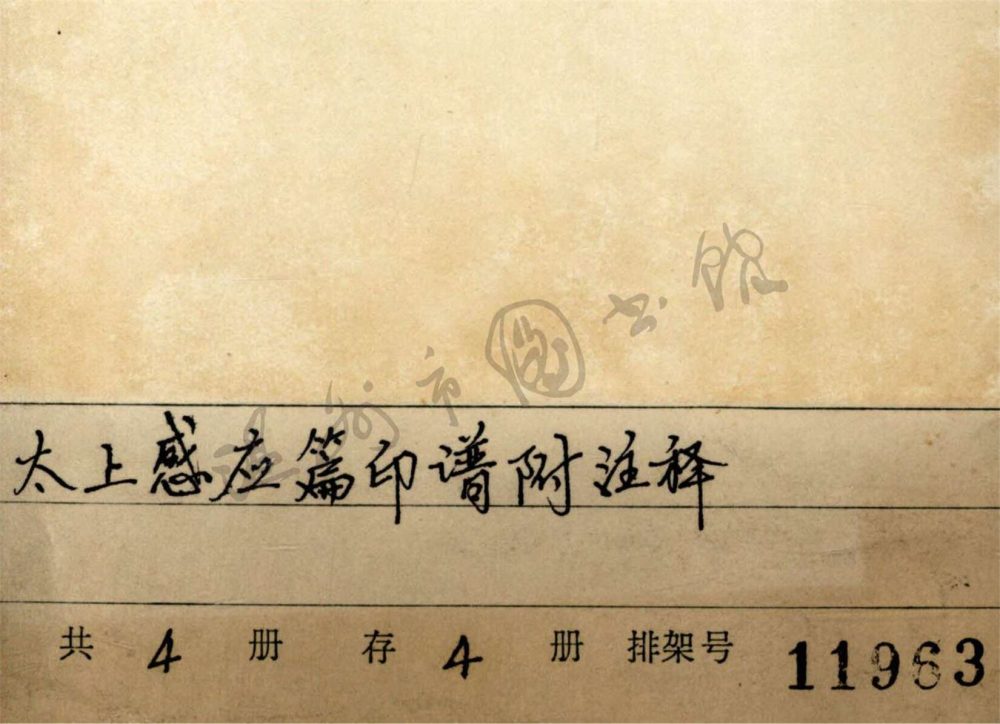 太上感应篇印谱附注释
共 4 册 存 4 册 排架号 11963